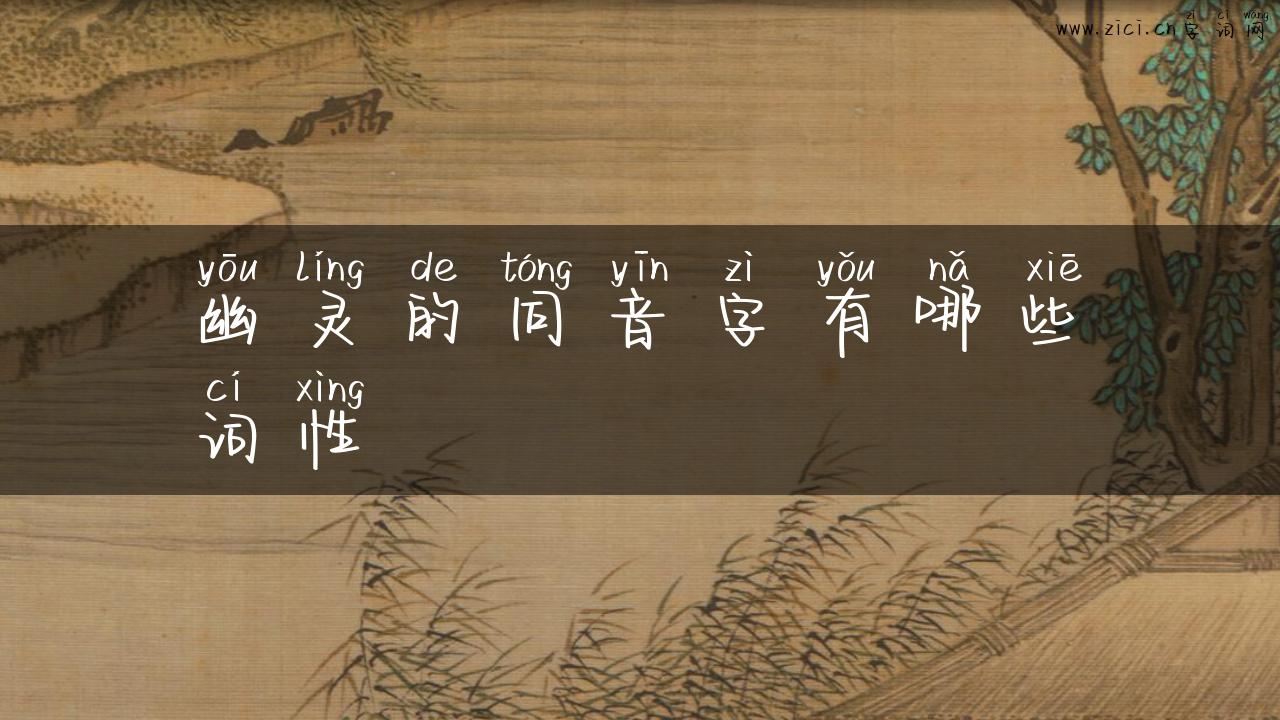 zì cí wǎng
www.zici.cn字词网
yōu líng de tóng yīn zì yǒu nǎ xiē
幽灵的同音字有哪些
cí xìng
词性